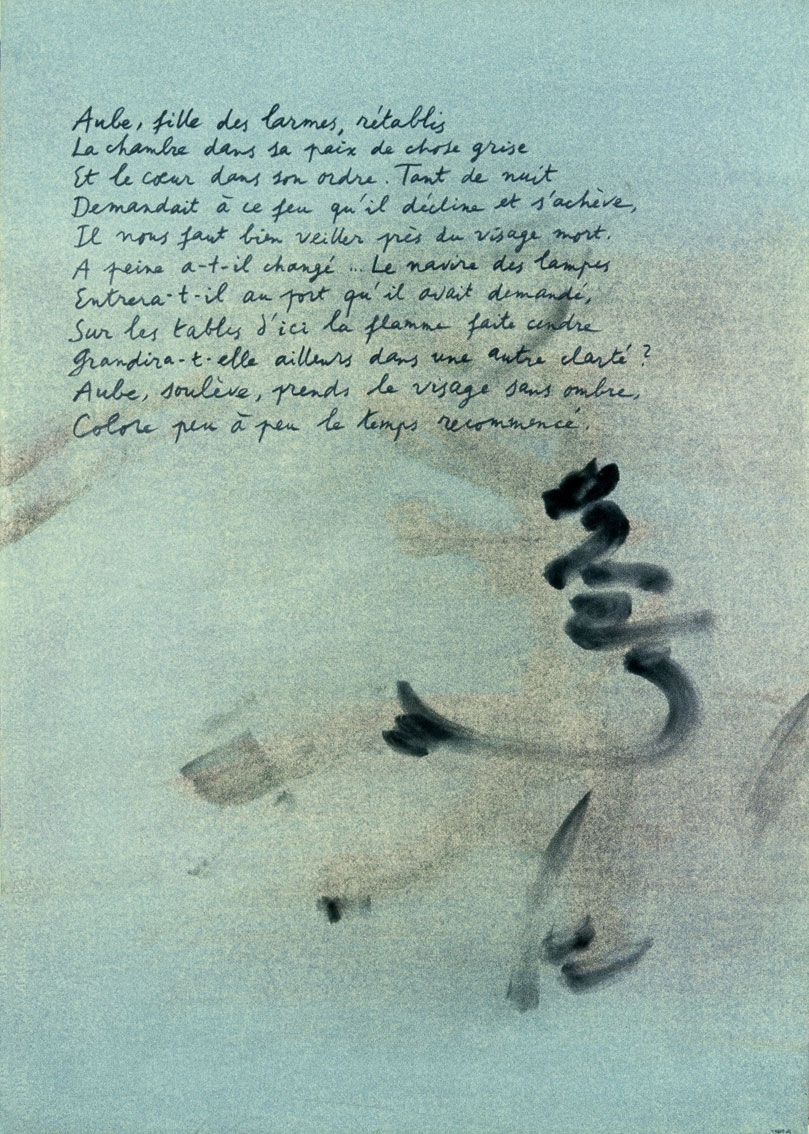 Aube, fille des larmes, rétablis
La chambre dans sa paix de chose grise
Et le cœur dans son ordre. Tant de nuit
Demandait à ce feu qu'il décline et s'achève,
Il nous faut bien veiller près du visage mort.
A peine a-t-il changé ... Le navire des lampes
Entrera-t-il au port qu'il avait demandé,
Sur les tables d'ici la flamme faite cendre
Grandira-t-elle ailleurs dans une autre clarté ?
Aube, soulève, prends le visage sans ombre,
Colore peu à peu le temps recommencé.